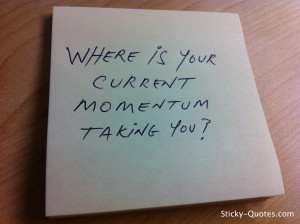 WHERE IS YOUR
CURRENT
MOMENTUM
TAKING YOU?
Sticky-Quotes.com